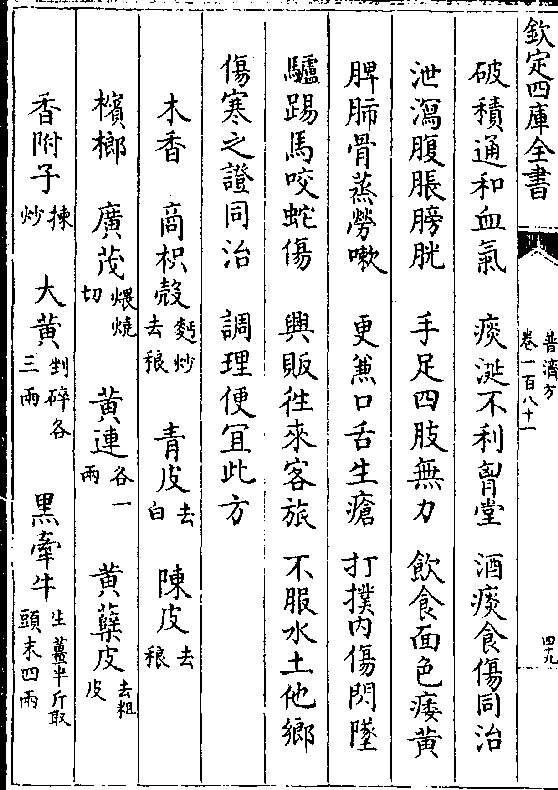 欽定四庫全書
普濟方
卷一百八十一
四九
破積通和血氣　痰涎不利胷堂　酒痰食傷同治
泄瀉腹脹膀胱　手足四肢無力　飲食面色痿黄
脾肺骨蒸勞嗽　更兼口舌生瘡　打撲内傷閃墜
驢踢馬咬蛇傷　興販徃來客旅　不服水土他鄉
傷寒之證同治　調理便宜此方
木香　商枳殻麩炒去穰　青皮去白　陳皮去穰
檳榔　廣茂煨燒切　黄連各一兩　黄蘗皮去粗皮
香附子揀炒　大黄剉碎各三兩　黒牽牛生薑半斤取頭末四兩